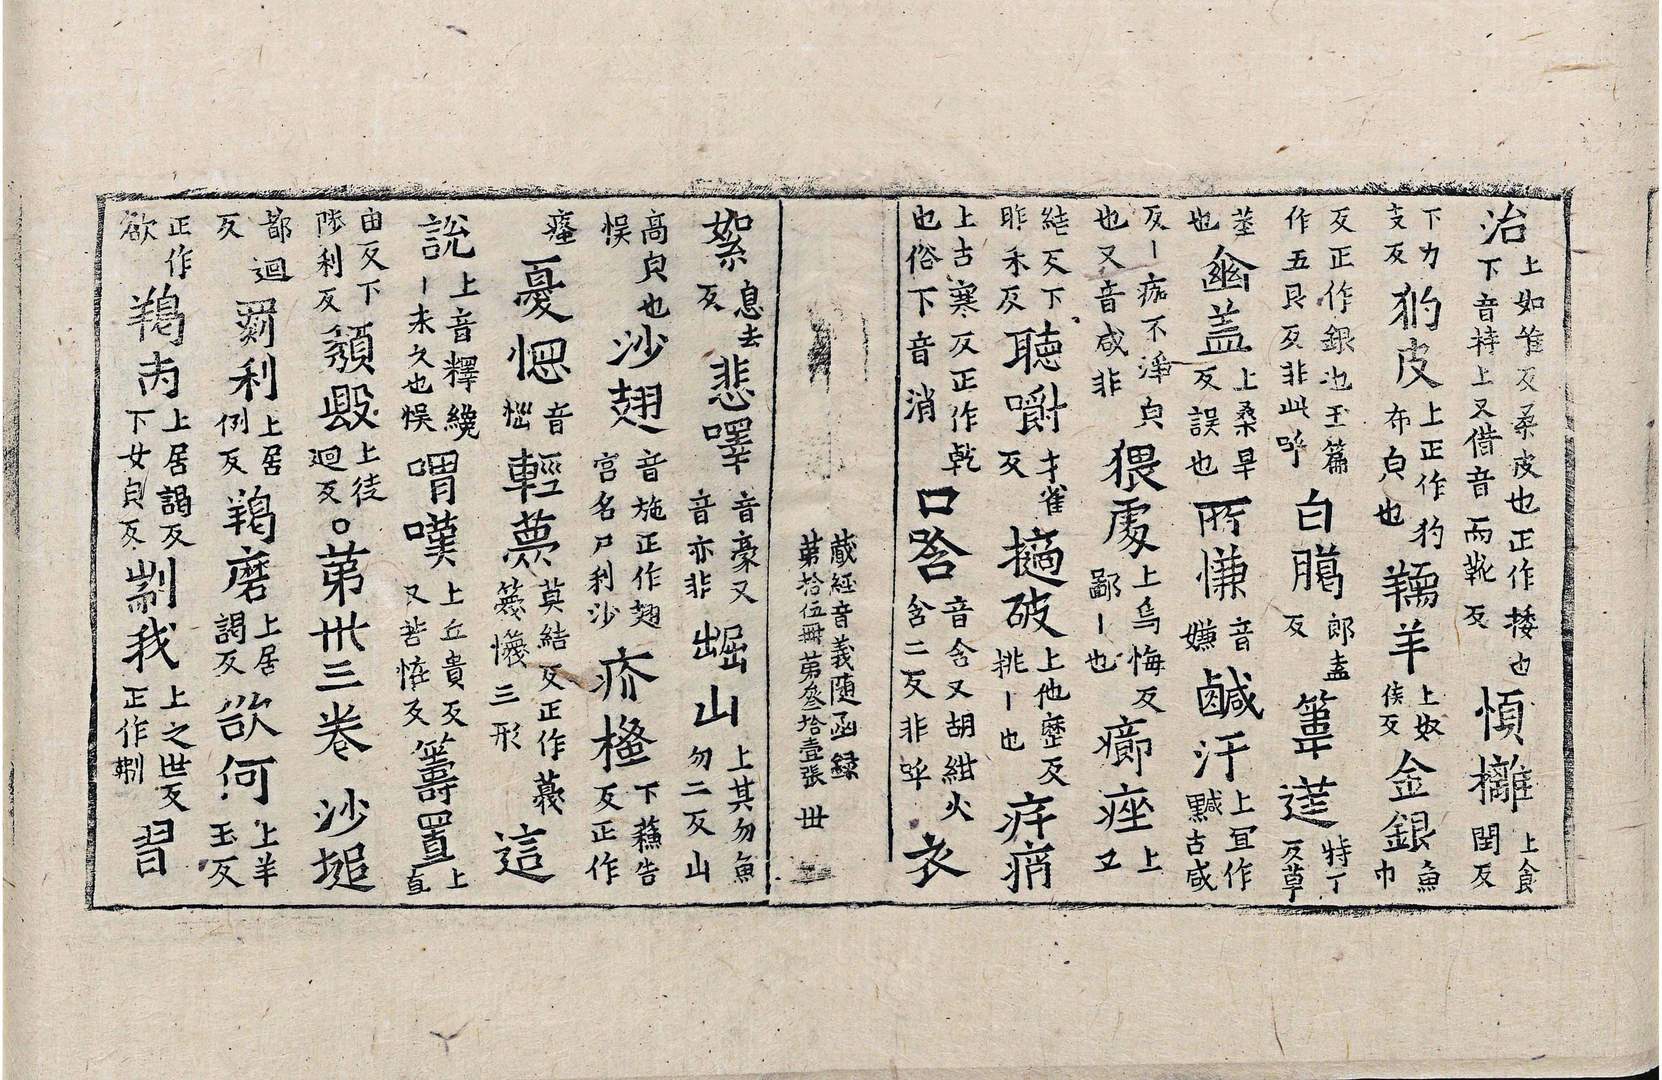 治上如隹反桑皮也正作捼也下音持上又借音而靴反愼㰚上食閏反
下力支反犳皮上正作豹布皃也羺羊上奴侯反金銀魚巾
反正作銀也玉篇作五艮反非此呼白䑃郎盍反篳蓫特丁反草
莖也龕盖上桑旱反誤也所慊音嫌鹹汗上宜作鹹古咸
反丨痂不淨皃也又音咸非猥處上烏悔反鄙丨也癤痤上又
結反下昨禾反聽嚼才雀反擿破上他歷反挑丨也痒痟
上古寒反正作乾也俗下音消口唅音含又胡紺火含二反非呼衣
藏經音義隨函錄
第拾伍冊第叄拾壹張 丗
絮息去反悲㘁音豪又音亦非崛山上其勿魚勿二反山
高皃也悞沙翅音施正作翅宮名尸利沙疥橀下蘓告反正作
瘙憂愢音惱輕䔾莫結反正作蔑䉲懱三形這
說上音釋纔丨未久也悞喟嘆上丘貴反又苦恠反籌置上直
由反下陟利反頹毀上徒迴反○第卅三卷沙搥
都迴反罽利上居例反羯磨上居謁反欲何上羊玉反
正作欲羯肉上居謁反下女皃反剬我上之世反正作制習